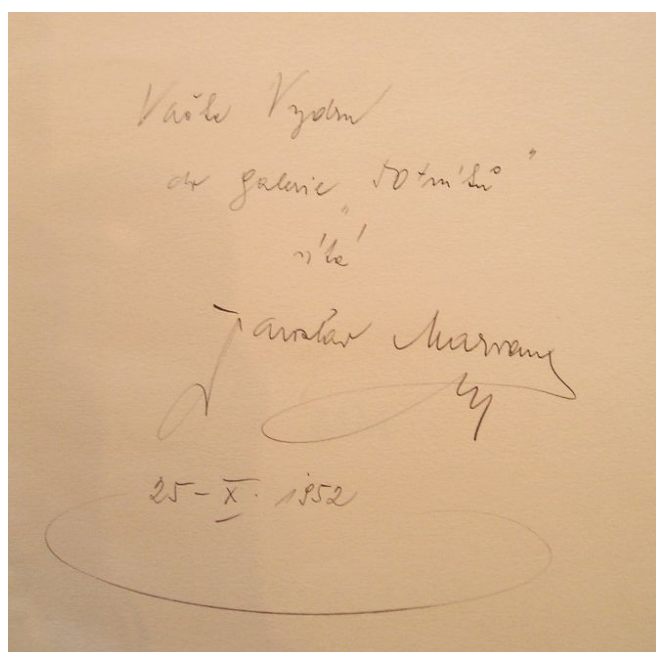 Vašku Vydru
do galerie „50tníků"
vítá
Jaroslav Marvan
25-X. 1952